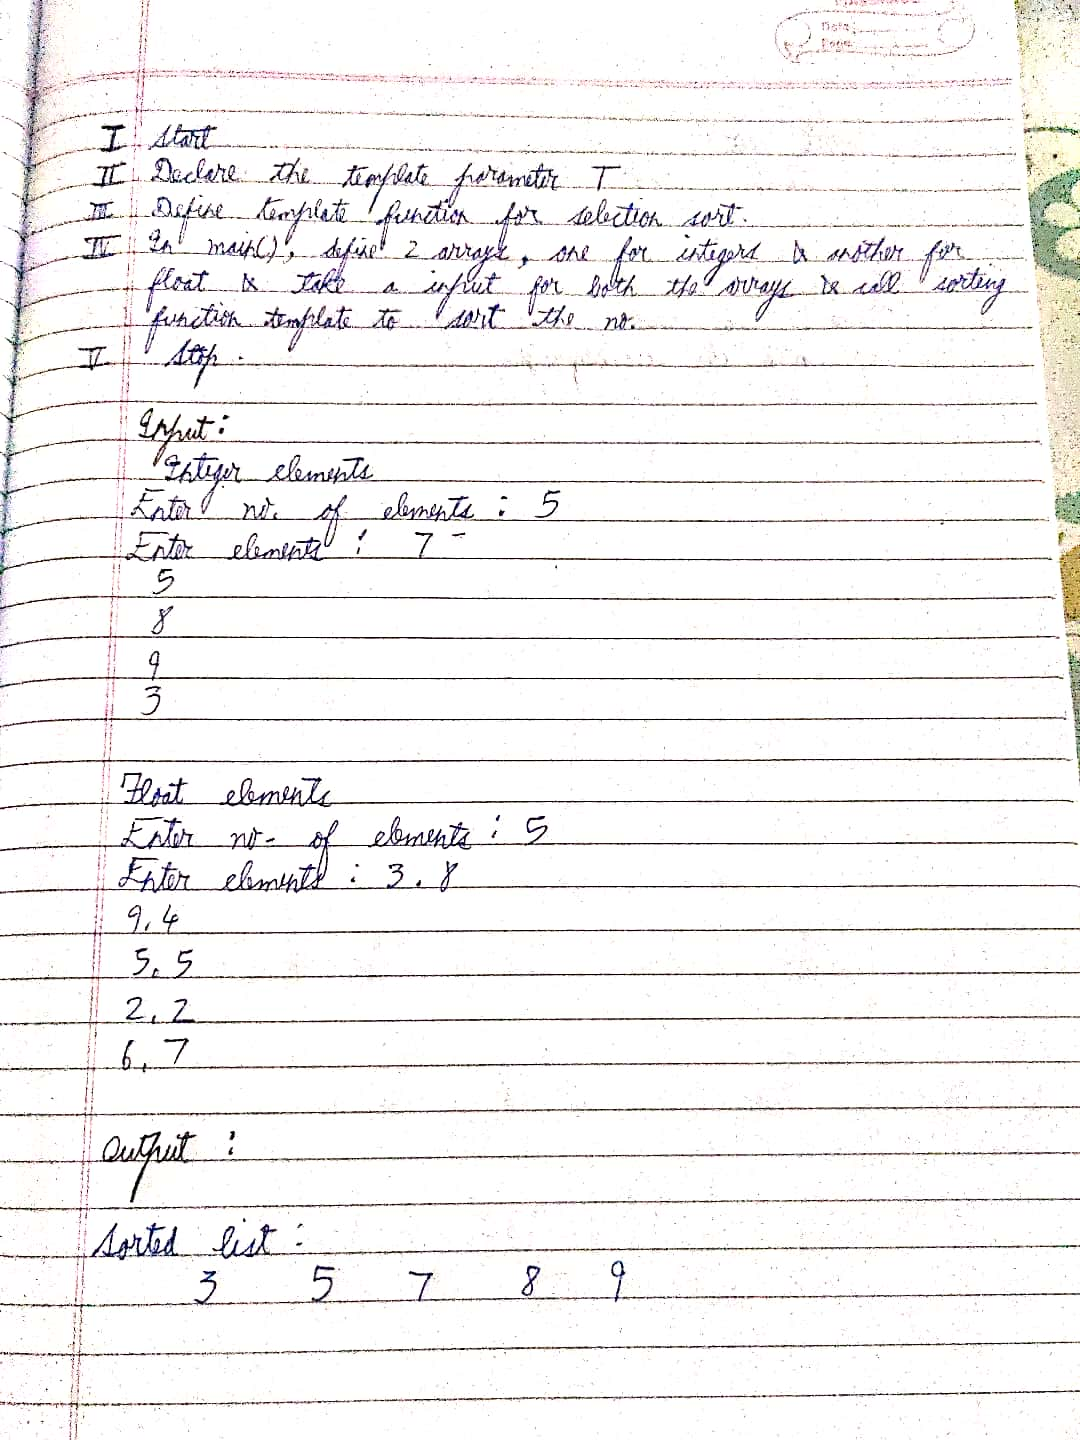 Date:
Page
I Start
II Declare the template parameter T
III Define template function for selection sort.
IV In main(), define 2 arrays, one for integers & another for
float & take a input for both the arrays & call sorting
function template to sort the no.
V Stop.
Input:
Integer elements
Enter no. of elements : 5
Enter elements : 7
5
8
9
3
Float elements
Enter no. of elements : 5
Enter elements : 3.8
9.4
5.5
2.2
6.7
Output :
Sorted list :
3 5 7 8 9